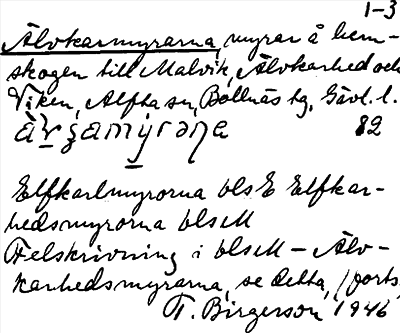 1-3
Älvkarmyrarna, myrar å hem-
skogen till Malvik, Älvkarhed och
Viken, Alfta sn, Bollnäs tg, Gävl. l.
82
Elfkarlmyrorna blsE Elfkar-
hedsmyrorna blsM
Felskrivning i blsM - Älv-
karhedsmyrarna, se detta, /forts.
T. Birgerson 1946